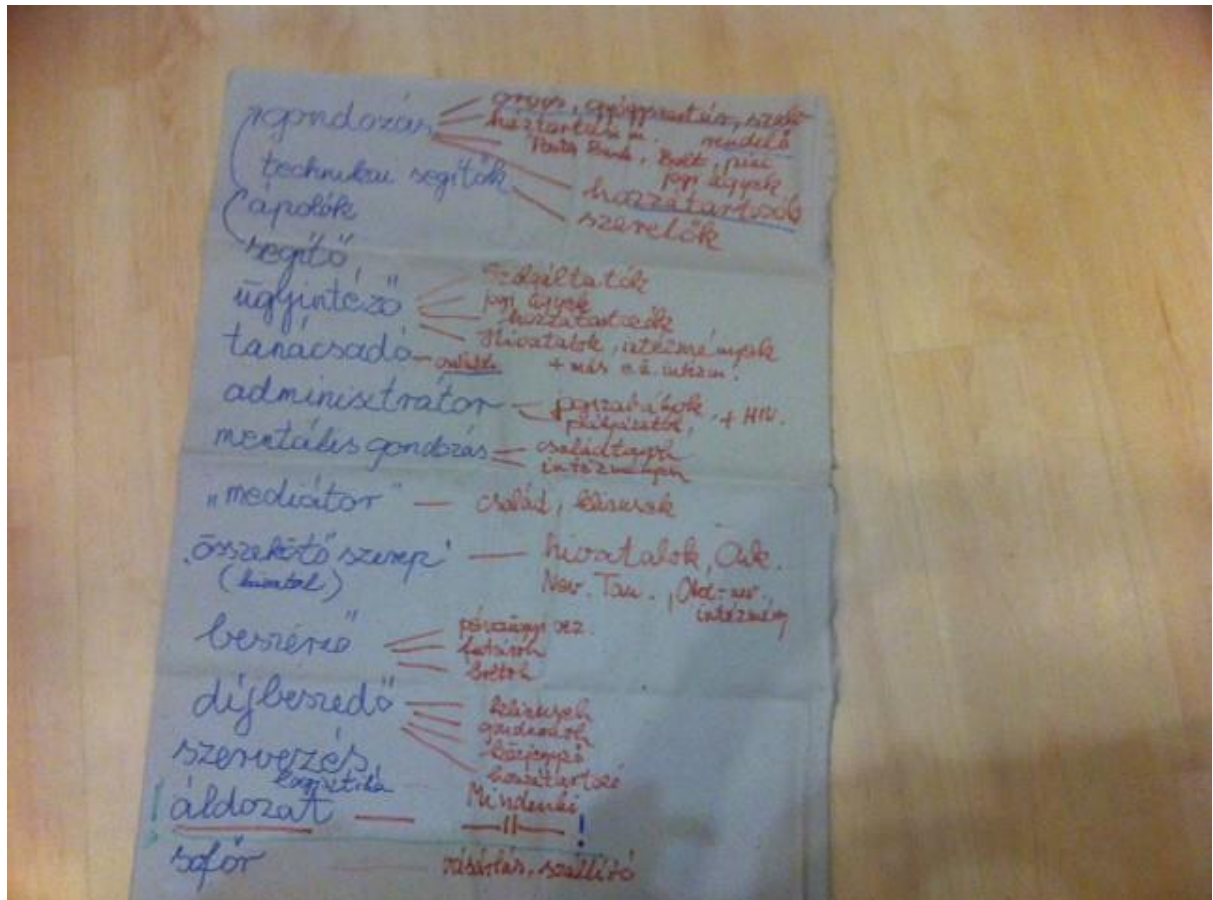 gondozás — orvos, gyógyszertár, szak-
háztartási rendelő
Posta Bank, Bolt, piac
jogi ügyek
technikai segítők hozzátartozók
szerelők
ápolók
segítő,
ügyintéző — Szolgáltatók
jogi ügyek
hozzátartozók
Hivatalok, intézmények
tanácsadó — család + más intézm.
adminisztrátor — jogszabályok, + HIV.
mentális gondozás — családtagok
intézmények
"mediátor" — család, kliensek
"összekötő szerep" — hivatalok, Önk.
(hivatal) Nev. Tan., Okt-nev.
intézmény
"beszerző" — pénzügyi vez.
boltok
díjbeszedő — kliensek
gondnokok
közjegyző
hozzátartozó
szervezés,
logisztika Mindenki
! áldozat — — 11 — !
sofőr — vásárlás, szállító